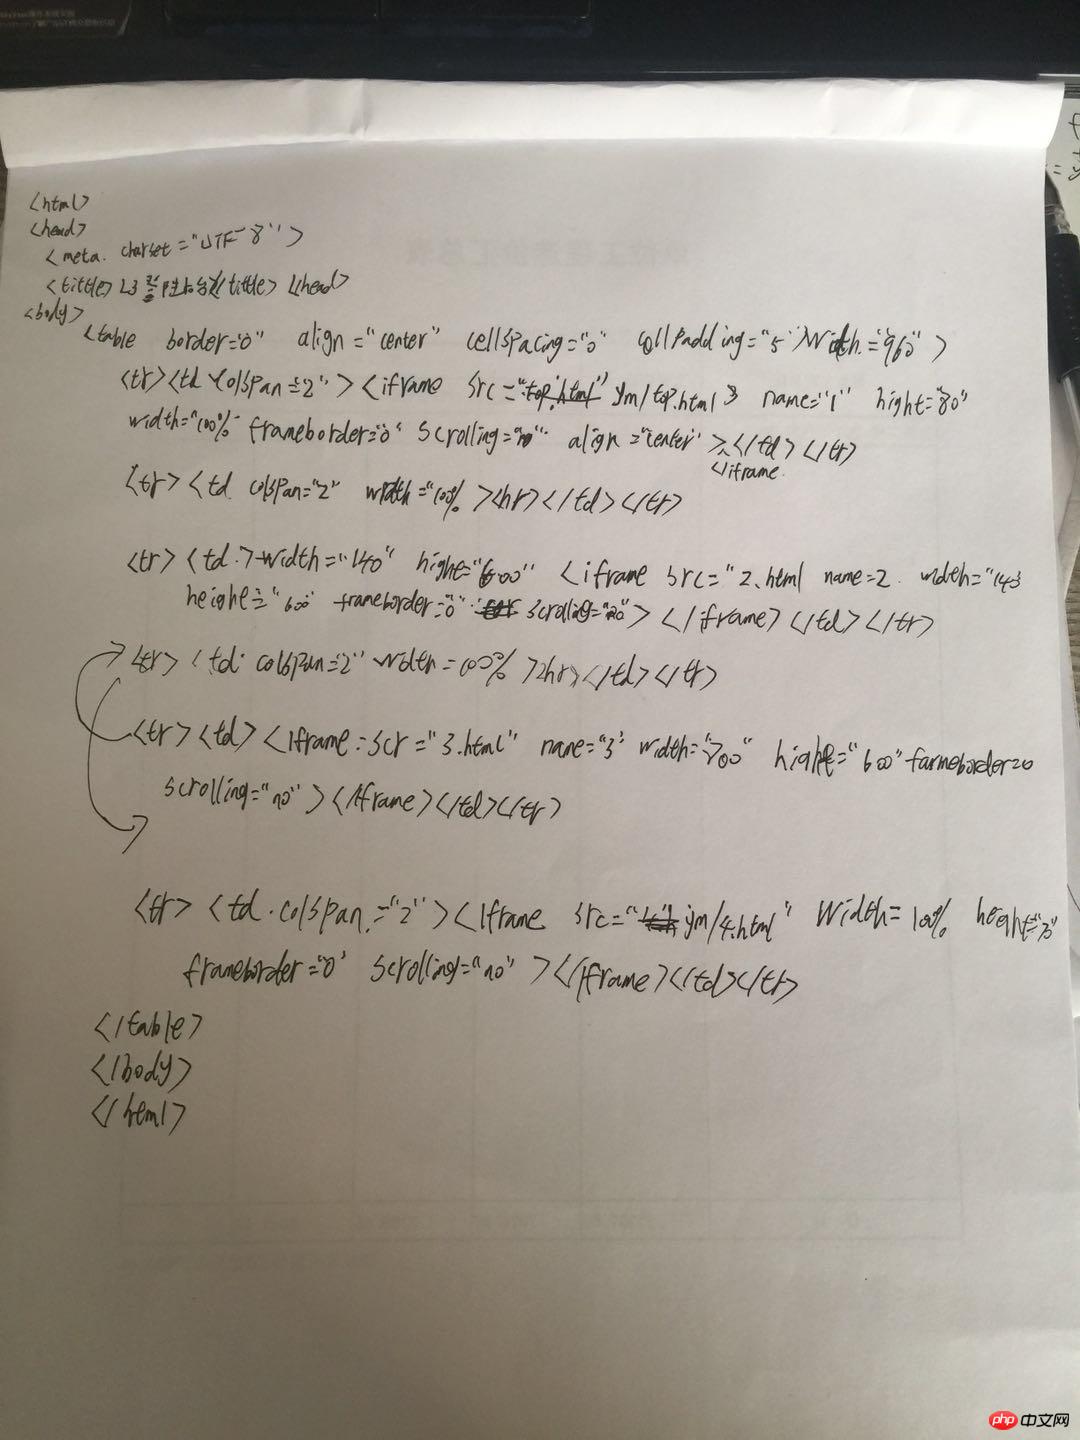 <html>
<head>
<meta. charset="UTF-8">
<tittle> </tittle> </head>
<body>
<table border="0" align="center" cellspacing="0" cellpadding="5" width="960">
<tr><td colspan="2"><iframe src="ym/top.html" name="1" hight="80"
width="100%" frameborder="0" scrolling="no" align="center"></td></tr>
</iframe.
<tr><td colspan="2" width="100%><hr></td></tr>
<tr><td.>width="140" hight="600" <iframe src="2.html name=2. width="140
height="600" frameborder="0" scrolling="no"></iframe></td></tr>
<tr><td colspan="2" width=100%><hr></td></tr>
<tr><td><iframe scr="3.html" name="3" width="700" hight="600" farmeborder=0
scrolling="no"></iframe></td></tr>
<tr><td.colspan="2"><iframe src="ym/4.html" width=100% height=
frameborder="0" scrolling="no"></iframe></td></tr>
</table>
</body>
</html>
php 中文网